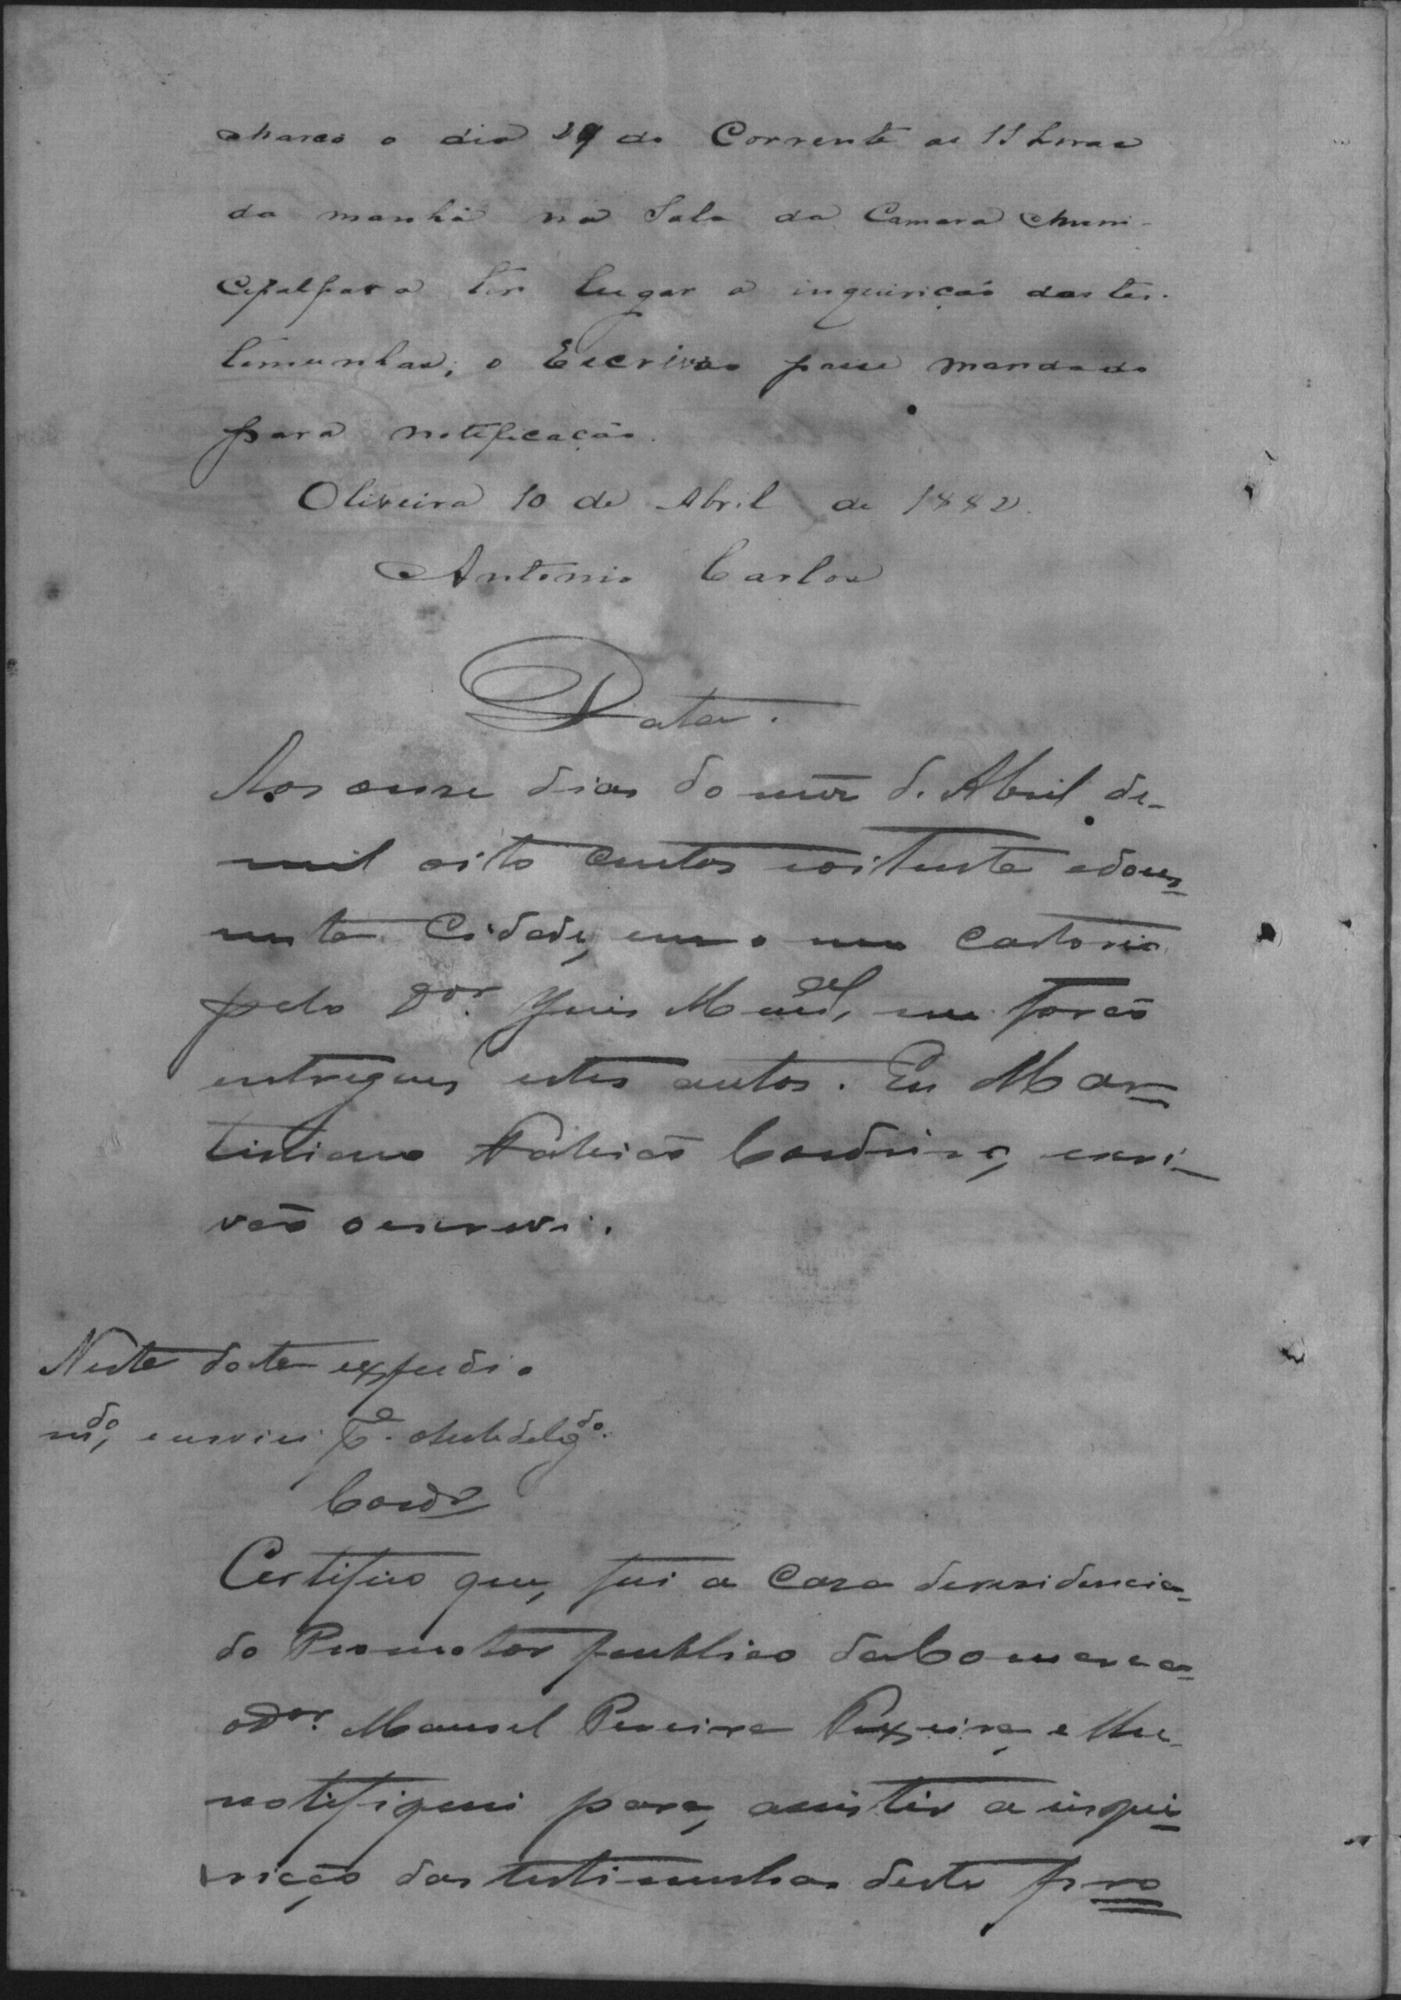 Marco o dia 29 do Corrente as 11 horas
da manhã na Sala da Camara Muni-
cipal para ter lugar a inquirição das tes-
temunhas, o Escrivão passe mandado
para notificação.
Oliveira 10 de Abril de 1882.
Antonio Carlos
Data.
Aos onze dias do mez de Abril de
mil oito centos eoitenta edous
nesta Cidade, em o meu cartorio
pelo Dor. Juis Mal, me forão
entregues estes autos. Eu Mar-
tiniano Cardoso, escri-
vão o escrevi.
Nesta data expedi o
mdo, enviei Subdelegdo.
Certifico que, fui a casa deresidencia
do Promotor publico da Comarca
o Dor. Manoel Pereira Teixeira, e lhe
notifiquei para, assistir a inqui-
rição das testimunhas deste pro